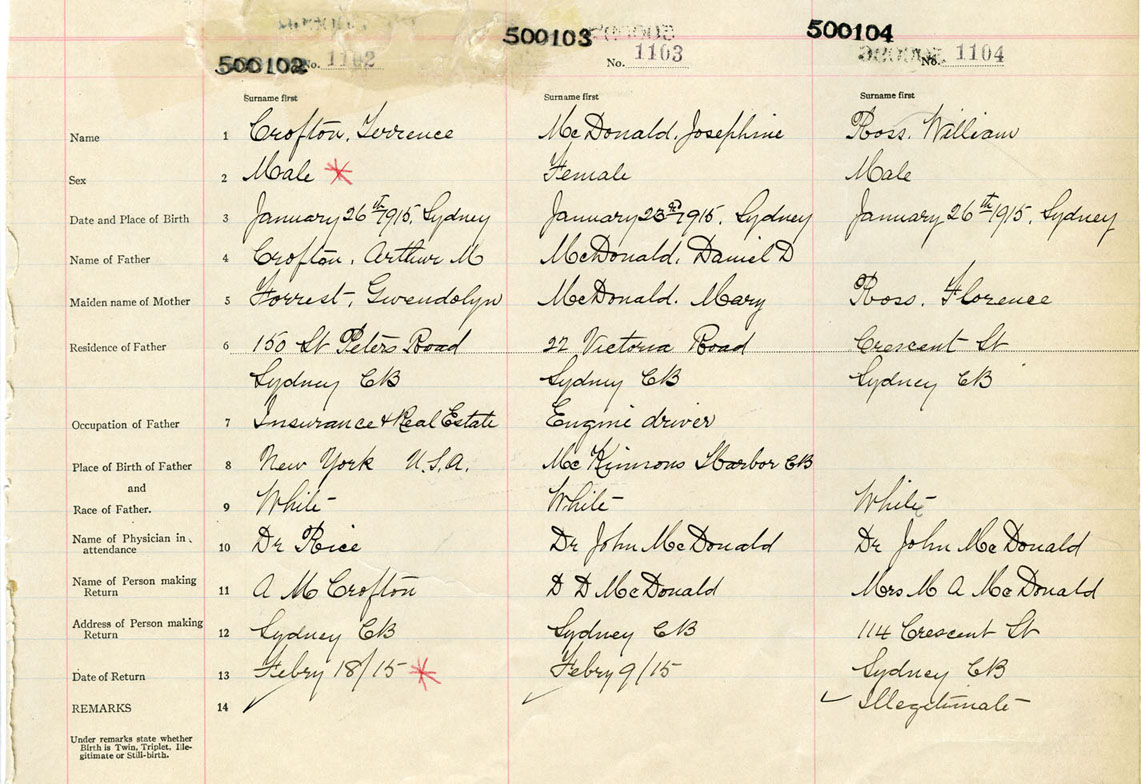 500102 No. 1102 500103 No. 1103 500104 No. 1104
Surname first Surname first Surname first
Name 1 Crofton, Terrence McDonald, Josephine Ross, William
Sex 2 Male * Female Male
Date and Place of Birth 3 January 26th 1915, Sydney January 23rd 1915, Sydney January 26th 1915, Sydney
Name of Father 4 Crofton, Arthur M McDonald, Daniel D
Maiden name of Mother 5 Forrest, Gwendolyn McDonald. Mary Ross. Florence
Residence of Father 6 150 St Peters Road 22 Victoria Road Crescent St
Sydney CB Sydney CB Sydney CB
Occupation of Father 7 Insurance & Real Estate Engine driver
Place of Birth of Father 8 New York U.S.A. McKinnons Harbor CB
and
Race of Father. 9 White White White
Name of Physician in attendance 10 Dr Rice Dr John McDonald Dr John McDonald
Name of Person making Return 11 A M Crofton D D McDonald Mrs M A McDonald
Address of Person making Return 12 Sydney CB Sydney CB 114 Crescent St
Date of Return 13 Febry 18/15 * Febry 9/15 Sydney CB
REMARKS 14 Illegitimate
Under remarks state whether
Birth is Twin, Triplet, Ille-
gitimate or Still-birth.